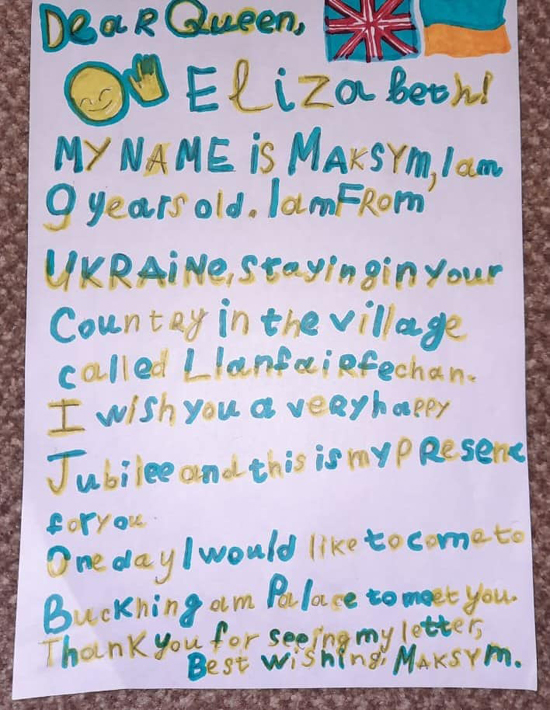 DeaR Queen,
Elizabeth!
MY NAME iS MAKSYm, I am
9 years old. I am FRom
UKRAiNe, staying in your
Country in the village
called Llanfairfechan.
I wish you a very happy
Jubilee and this is my PResenc
for you
One day I would like to come to
Buckhing am Palace to meet you.
Thank you for seeing my letter,
Best wishing, MAKSYm.